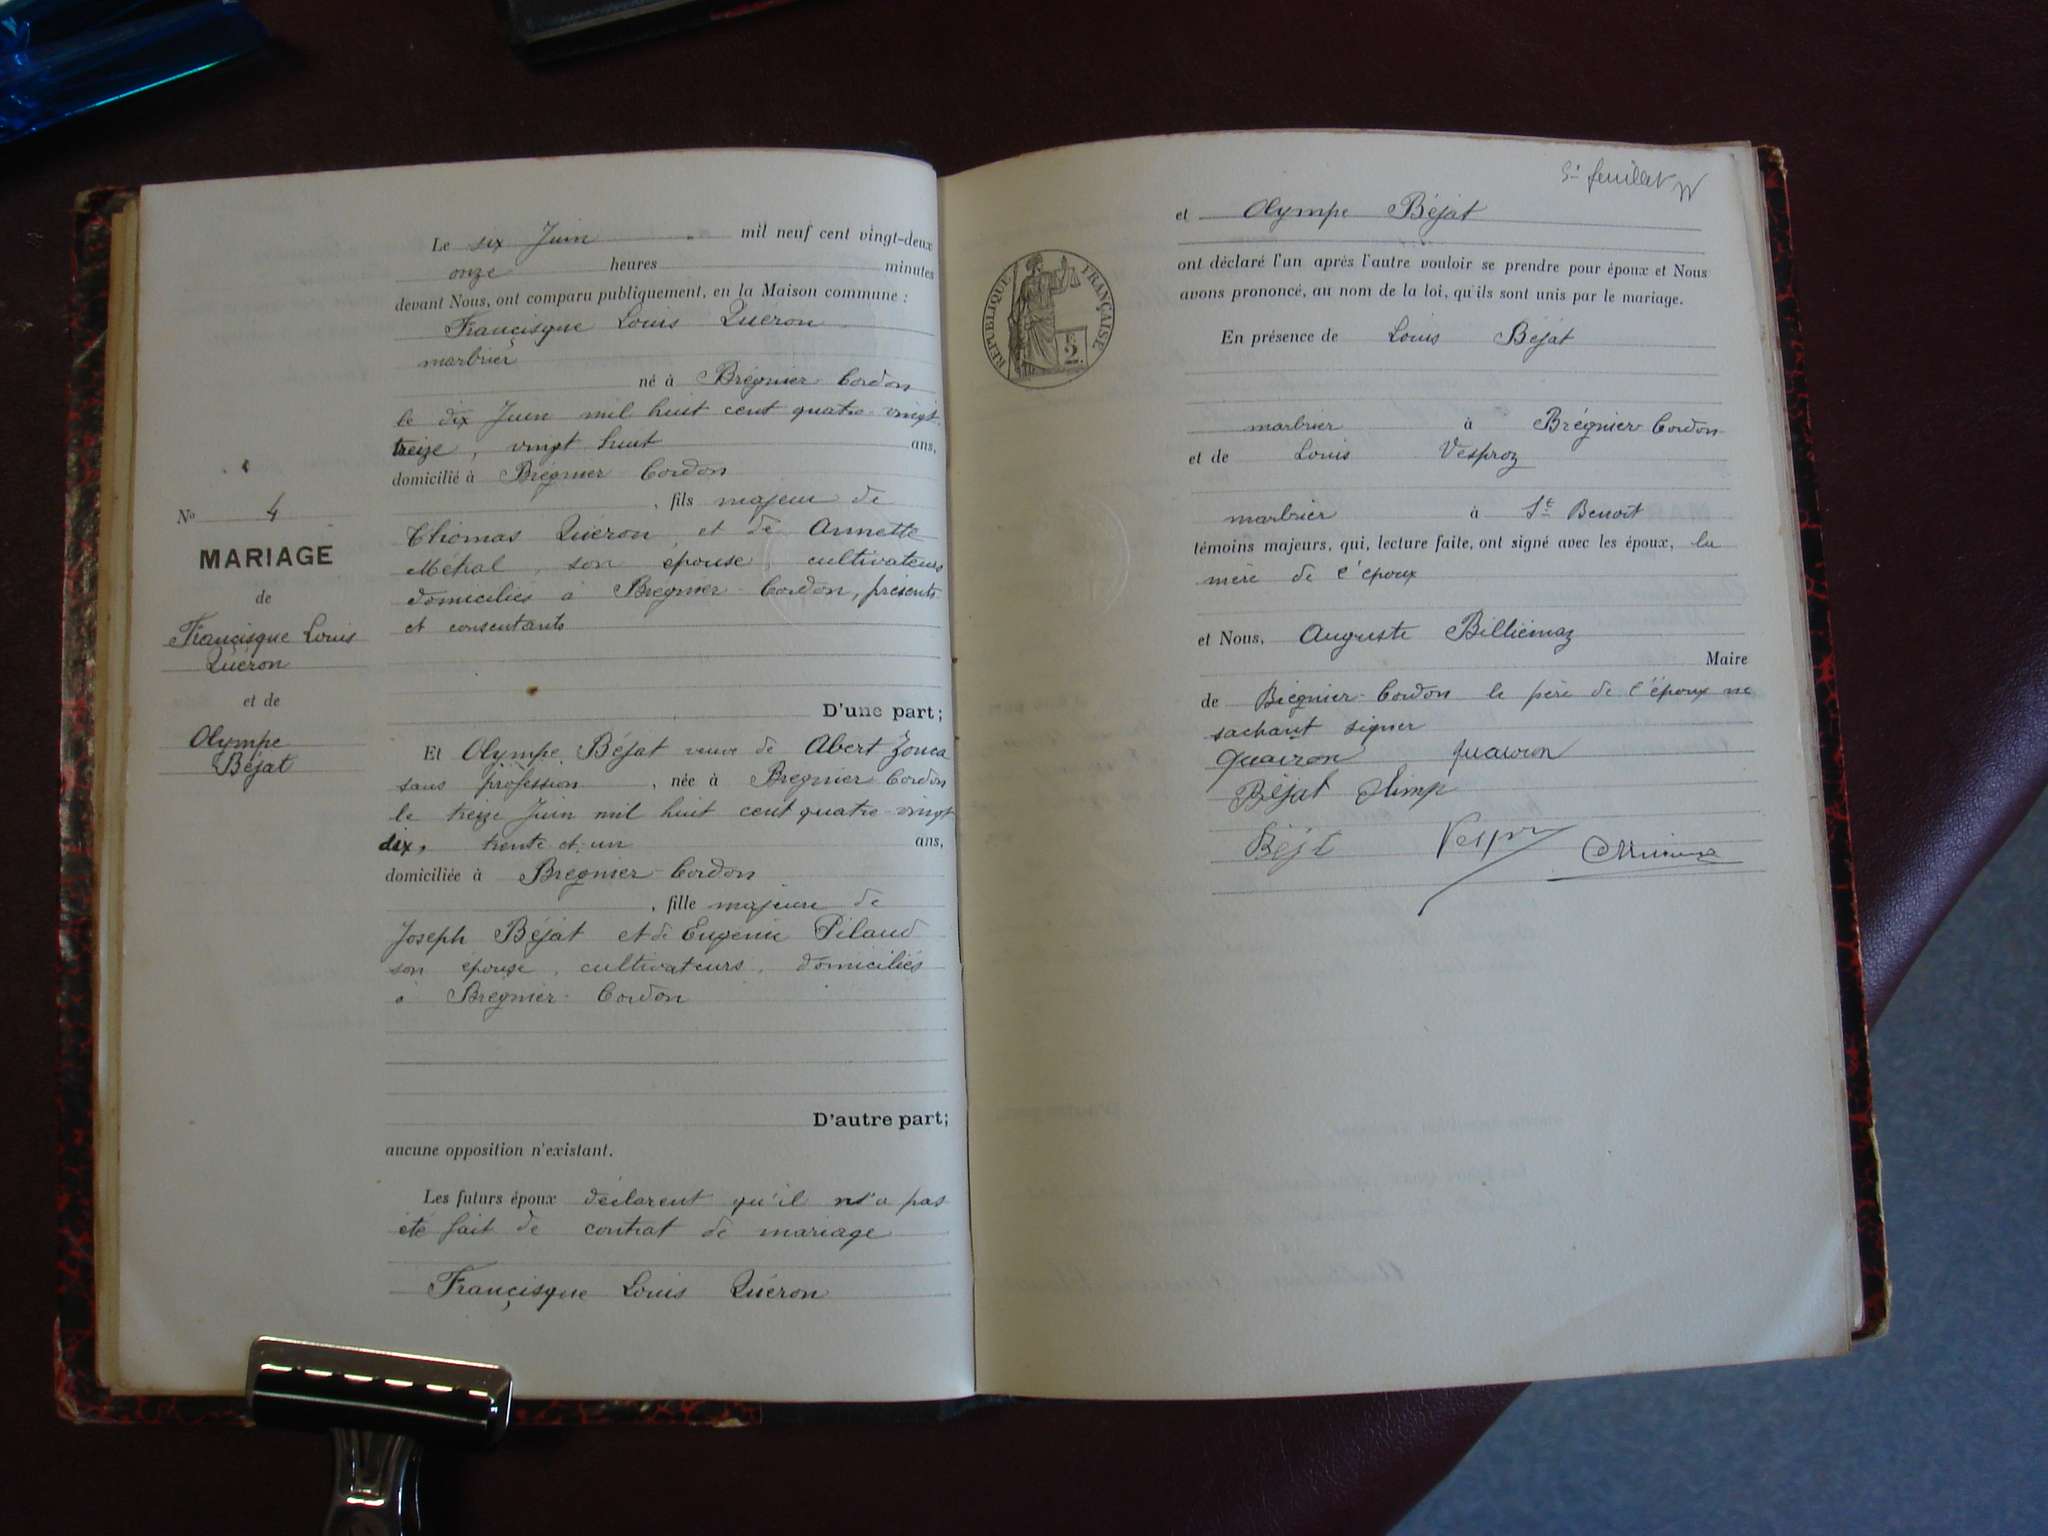 Le six Juin mil neuf cent vingt-deux
onze heures minutes
devant Nous, ont comparu publiquement, en la Maison commune :
Francisque Louis Quéron
marbrier
né à Brégnier-Cordon
le dix Juin mil huit cent quatre-vingt-
treize, vingt huit ans,
domicilié à Brégnier Cordon
, fils majeur de
Thomas Quéron, et de Annette
Métral, son épouse, cultivateurs
domiciliés à Brégnier-Cordon, présents
et consentants
D'une part;
No 4
MARIAGE
de
Francisque Louis
Quéron
et de
Olympe
Béjat
Et Olympe Béjat veuve de Abert Zouca
sans profession, née à Brégnier Cordon
le treize Juin mil huit cent quatre-vingt
dix, trente et un ans,
domiciliée à Brégnier-Cordon
, fille majeure de
Joseph Béjat et de Eugénie Pilaud
son épouse, cultivateurs, domiciliés
à Brégnier-Cordon
D'autre part;
aucune opposition n'existant.
Les futurs époux déclarent qu'il n'a pas
été fait de contrat de mariage
Francisque Louis Quéron
5e feuillet
et Olympe Béjat
RÉPUBLIQUE FRANÇAISE
ont déclaré l'un après l'autre vouloir se prendre pour époux et Nous
avons prononcé, au nom de la loi, qu'ils sont unis par le mariage.
En présence de Louis Béjat
marbrier à Brégnier-Cordon
et de Louis Vesproz
marbrier à St Benoit
témoins majeurs, qui, lecture faite, ont signé avec les époux, la
mère de l'époux
et Nous, Auguste Billiemaz
Maire
de Brégnier-Cordon le père de l'époux ne
sachant signer
quairon quairon
Béjat Olimp
Béjt Vespr